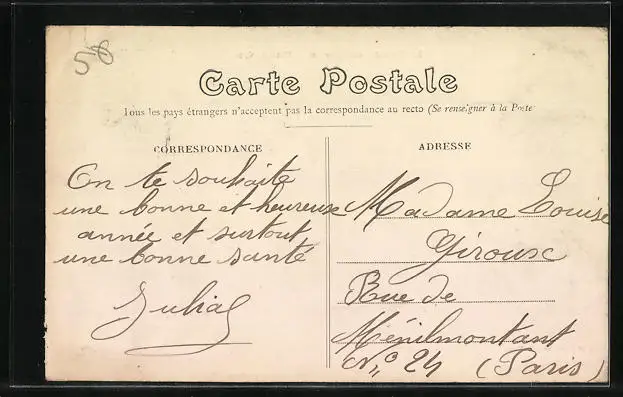 58
Carte Postale
Tous les pays étrangers n'acceptent pas la correspondance au recto (Se renseigner à la Poste
CORRESPONDANCE
On te souhaite
une bonne et heureuse
année et surtout
une bonne santé
Julia
ADRESSE
Madame Louise
Giroux
Rue de
Ménilmontant
No 24 (Paris)